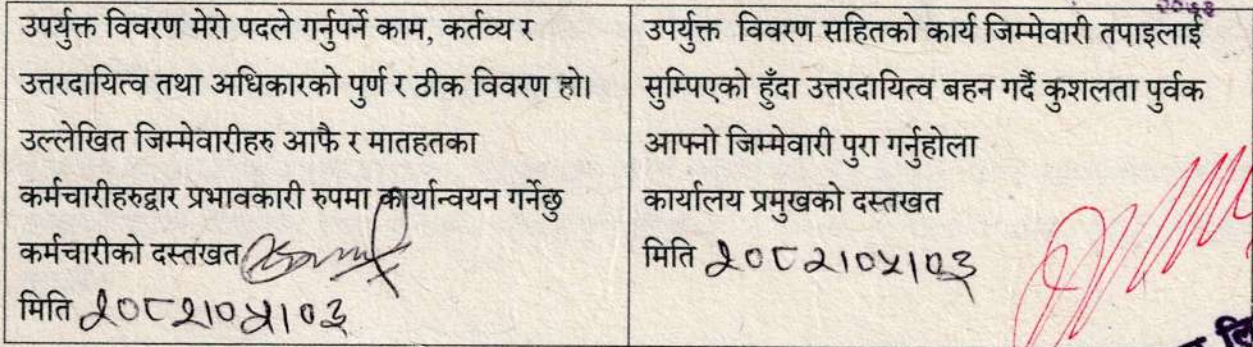 उपर्युक्त विवरण मेरो पदले गर्नुपर्ने काम, कर्तव्य र
उत्तरदायित्व तथा अधिकारको पुर्ण र ठीक विवरण हो।
उल्लेखित जिम्मेवारीहरु आफै र मातहतका
कर्मचारीहरुद्वार प्रभावकारी रुपमा कार्यान्वयन गर्नेछु
कर्मचारीको दस्तखत
मिति २०८२।०५।०३
उपर्युक्त विवरण सहितको कार्य जिम्मेवारी तपाइलाई
सुम्पिएको हुँदा उत्तरदायित्व बहन गर्दै कुशलता पुर्वक
आफ्नो जिम्मेवारी पुरा गर्नुहोला
कार्यालय प्रमुखको दस्तखत
मिति २०८२।०५।०३